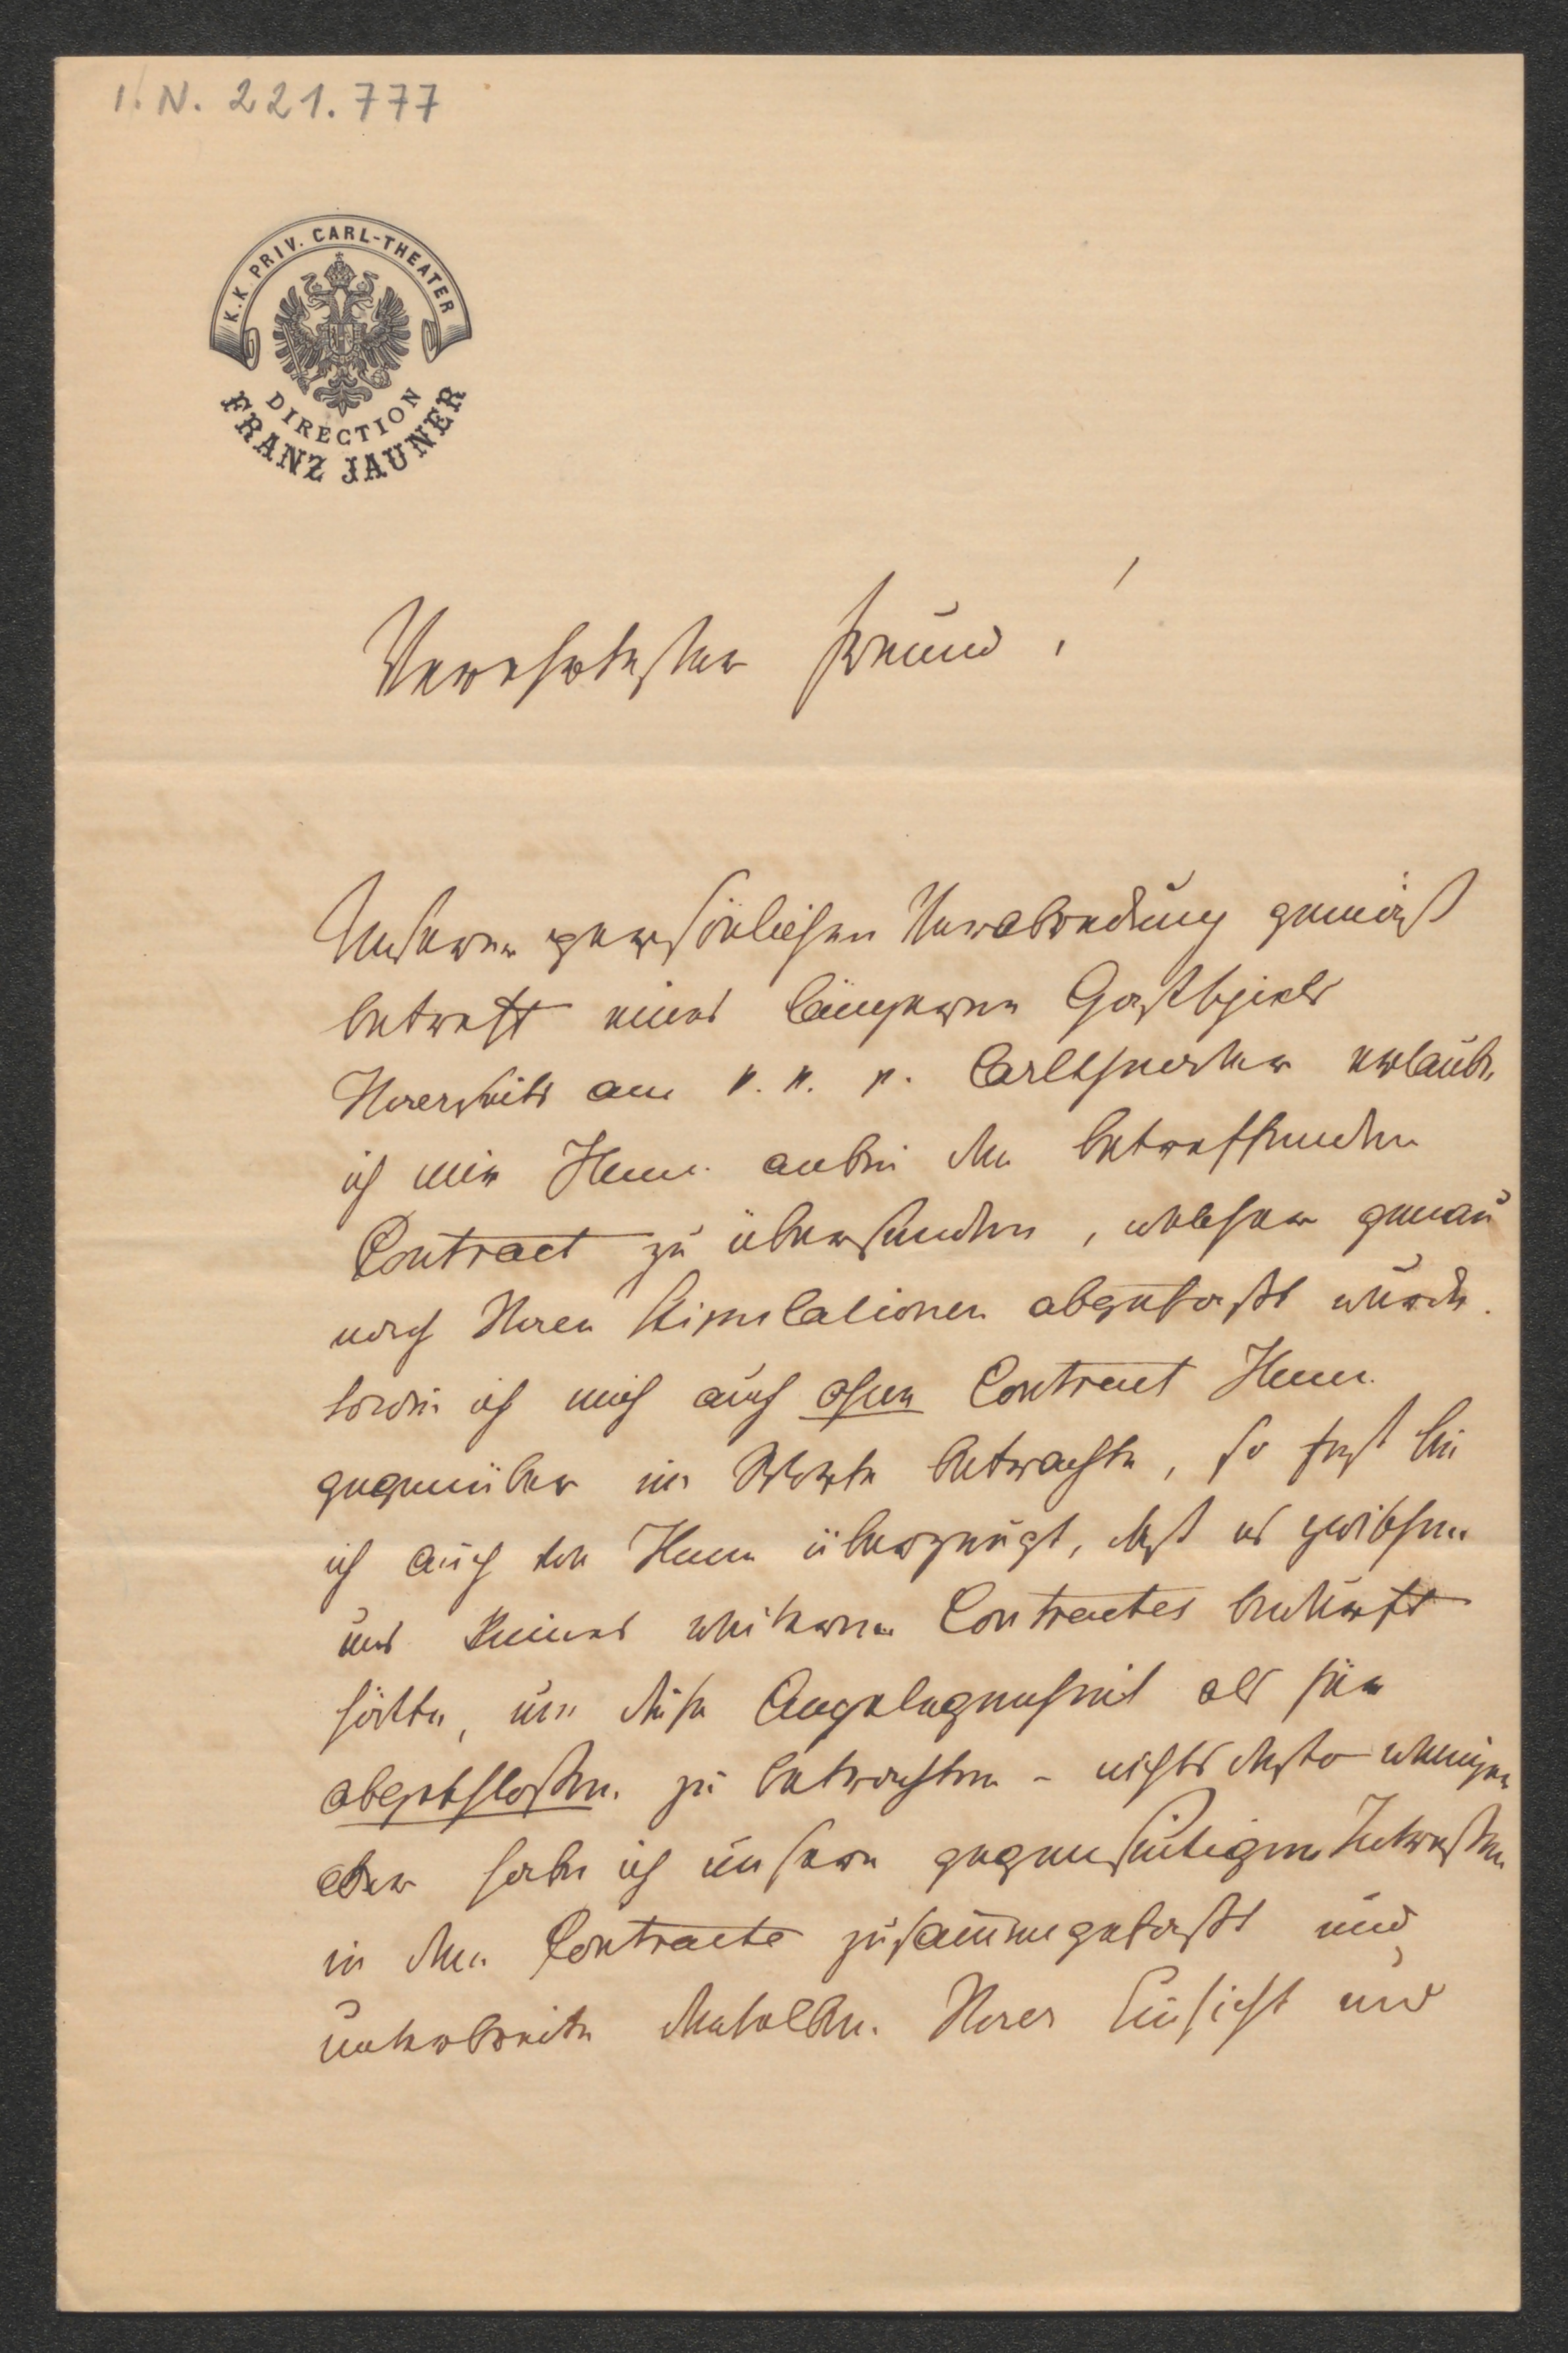 I. N. 221.777
K.K. PRIV. CARL-THEATER
DIRECTION
FRANZ JAUNER
Verehrtester Freund!
Unserer persönlichen Verabredung gemäß
betreff eines längeren Gastspiels
Ihrerseits am k. k. p. Carltheater erlaube
ich mir Ihnen anbei den betreffenden
Contract zu übersenden, welcher genau
nach Ihren Stipulationen abgefaßt wurde.
Sowie ich mich auch ohne Contract Ihnen
gegenüber im Worte betrachte, so fest bin
ich auch von Ihnen überzeugt, daß es zwischen
uns keines weiteren Contractes bedurft
hätte, um diese Angelegenheit als für
abgeschloßen zu betrachten - nichts desto weniger
aber habe ich unsere gegenseitigen Interessen
in dem Contracte zusammengefaßt und
unterbreite denselben Ihrer Einsicht und